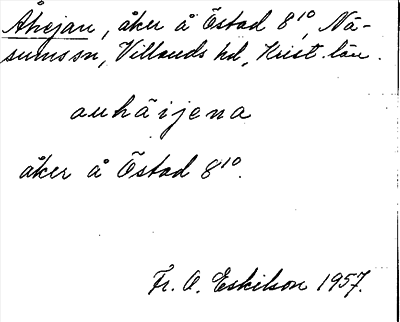 Åhejan, åker å Östad 8¹⁰, Nä-
sums sn, Villands hd, Krist. län.
auhäijena
åker å Östad 8¹⁰.
Fr. O. Eskilson 1957.